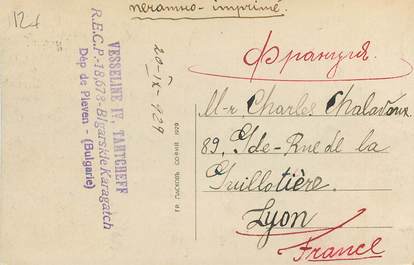 12f
neramno-imprimé.
VESSELINE IV, TANTCHEFF
R.E.C.P.-18,678-Blgarskie Karagatch
Dép de Pleven - (Bulgarie)
20-IX-929
ГР. ПАСКОВЪ СОФИЯ 1929
Франция.
M-r Charles Chalavoux
89, Gde-Rue de la
Guillotière.
Lyon
France